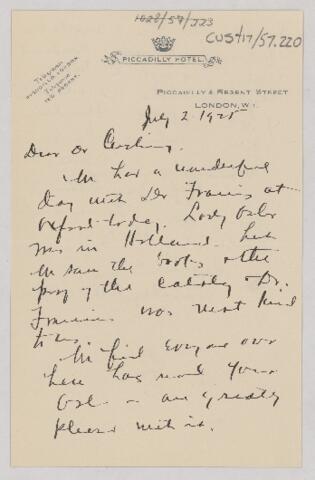 1028/57/J23
CUS417/57.220
TELEGRAMS
PIQUDILLO, LONDON.
TELEPHONE
160 REGENT.
PICCADILLY HOTEL.
PICCADILLY & REGENT STREET
LONDON, W.1.
July 2 1925
Dear Dr Cushing.
We had a wonderful
day with Dr Francis at
Oxford today. Lady Osler
was in Holland but
we saw the books & the
of the Catalog. Dr.
Francis was most kind
to us.
We find everyone over
here has read your
Osler & are greatly
pleased with it.